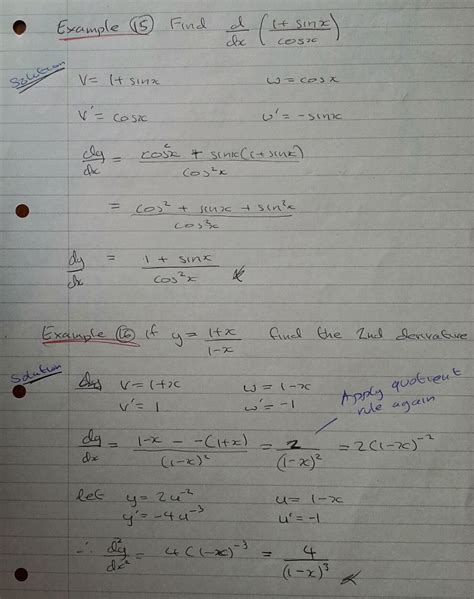 Example (15) Find d/dx ((1 + sinx)/cosx)
Solution
V = 1 + sinx    w = cosx
V' = cosx    w' = -sinx
dy/dx = (cos²x + sinx(1 + sinx))/cos²x
= (cos² + sinx + sin²x)/cos²x
dy/dx = (1 + sinx)/cos²x
Example (16) if y = (1+x)/(1-x) find the 2nd derivative
Solution
V = 1+x    w = 1-x
V' = 1    w' = -1
Apply quotient
rule again
dy/dx = (1-x - -(1+x))/(1-x)² = 2/(1-x)² = 2(1-x)⁻²
let y = 2u⁻²    u = 1-x
y' = -4u⁻³    u' = -1
∴ d²y/dx² = 4(1-x)⁻³ = 4/(1-x)³